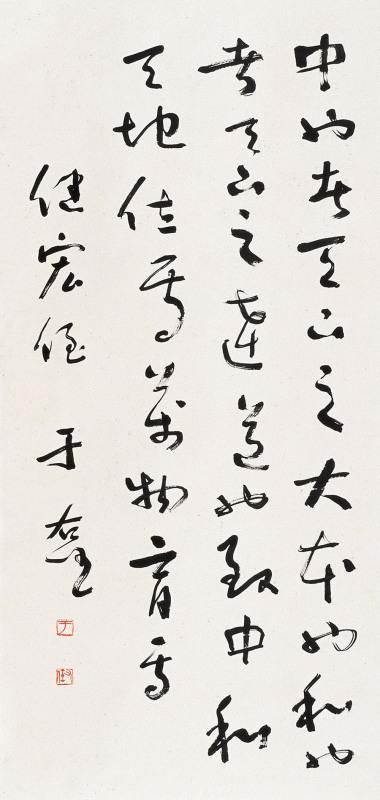 中也者天下之大本也和也
者天下之達道也致中和
天地位焉萬物育焉
健宏侄 于右任